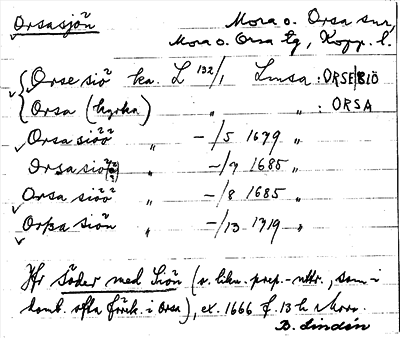 Orsasjön Mora o. Orsa snr,
Mora o. Orsa tg, Kopp. l.
Orse siö ka. L 132/1 Lmsa: ORSE SIÖ
Orsa (kyrka) " " : ORSA
Orsa siöö " -/5 1679 "
Orsa siö " -/7 1685 "
Orsa siöö " -/8 1685 "
Orßa siön " -/13 1719 "
Jfr Söder med Siön (v. likn. prep.-uttr., som i
komb. ofta förek. i Orsa), ex. 1666 f. 13 h Mora.
B. Lindén